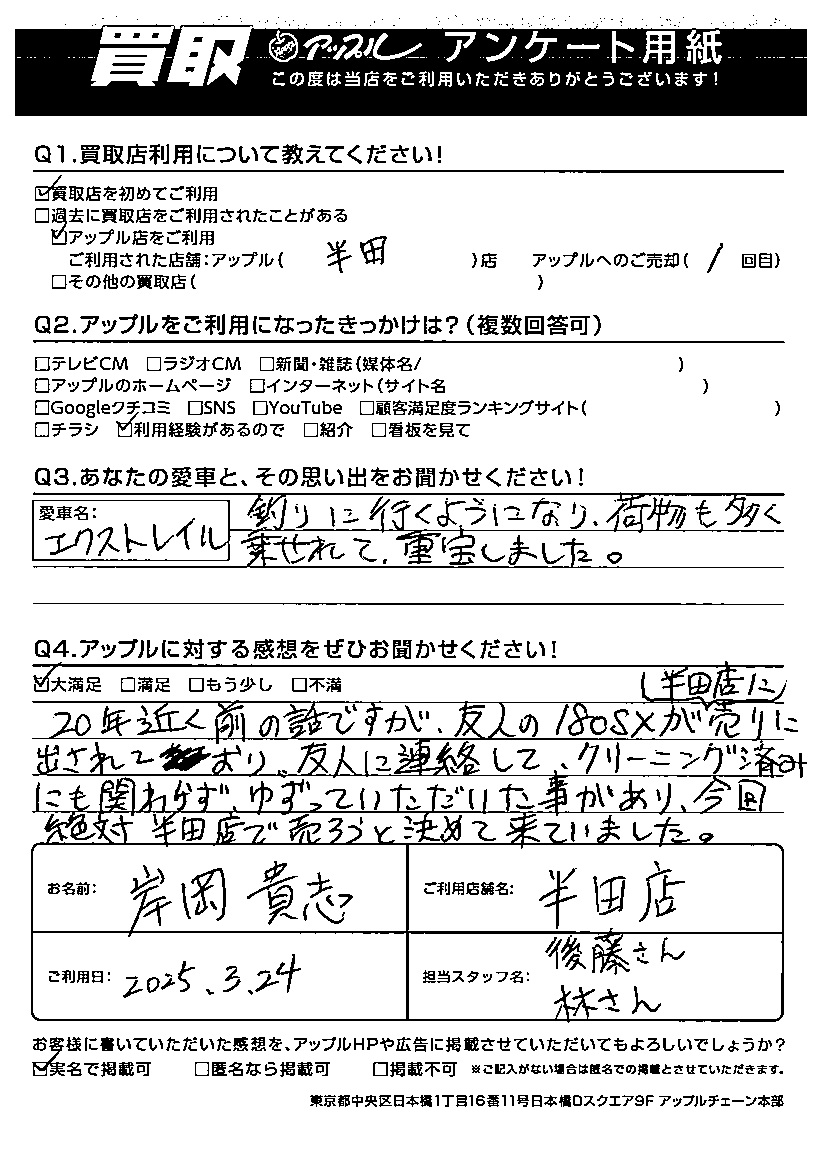 買取 アップル アンケート用紙
この度は当店をご利用いただきありがとうございます!
Q1.買取店利用について教えてください!
☑買取店を初めてご利用
□過去に買取店をご利用されたことがある
☑アップル店をご利用
ご利用された店舗:アップル( 半田 )店 アップルへのご売却( 1 回目)
□その他の買取店( )
Q2.アップルをご利用になったきっかけは?(複数回答可)
□テレビCM □ラジオCM □新聞・雑誌(媒体名/ )
□アップルのホームページ □インターネット(サイト名 )
□Googleクチコミ □SNS □YouTube □顧客満足度ランキングサイト( )
□チラシ ☑利用経験があるので □紹介 □看板を見て
Q3.あなたの愛車と、その思い出をお聞かせください!
愛車名:
エクストレイル
釣りに行くようになり、荷物も多く
乗せれて、重宝しました。
Q4.アップルに対する感想をぜひお聞かせください!
☑大満足 □満足 □もう少し □不満
(半田店に)
20年近く前の話ですが、友人の180SXが売りに
出されており、友人に連絡して、クリーニング済み
にも関わらず、ゆずっていただいた事があり、今回
絶対半田店で売ろうと決めて来ていました。
お名前: 岸岡 貴志
ご利用店舗名: 半田店
ご利用日: 2025.3.24
担当スタッフ名: 後藤さん
林さん
お客様に書いていただいた感想を、アップルHPや広告に掲載させていただいてもよろしいでしょうか?
☑実名で掲載可 □匿名なら掲載可 □掲載不可 ※ご記入がない場合は匿名での掲載とさせていただきます。
東京都中央区日本橋1丁目16番11号日本橋Dスクエア9F アップルチェーン本部